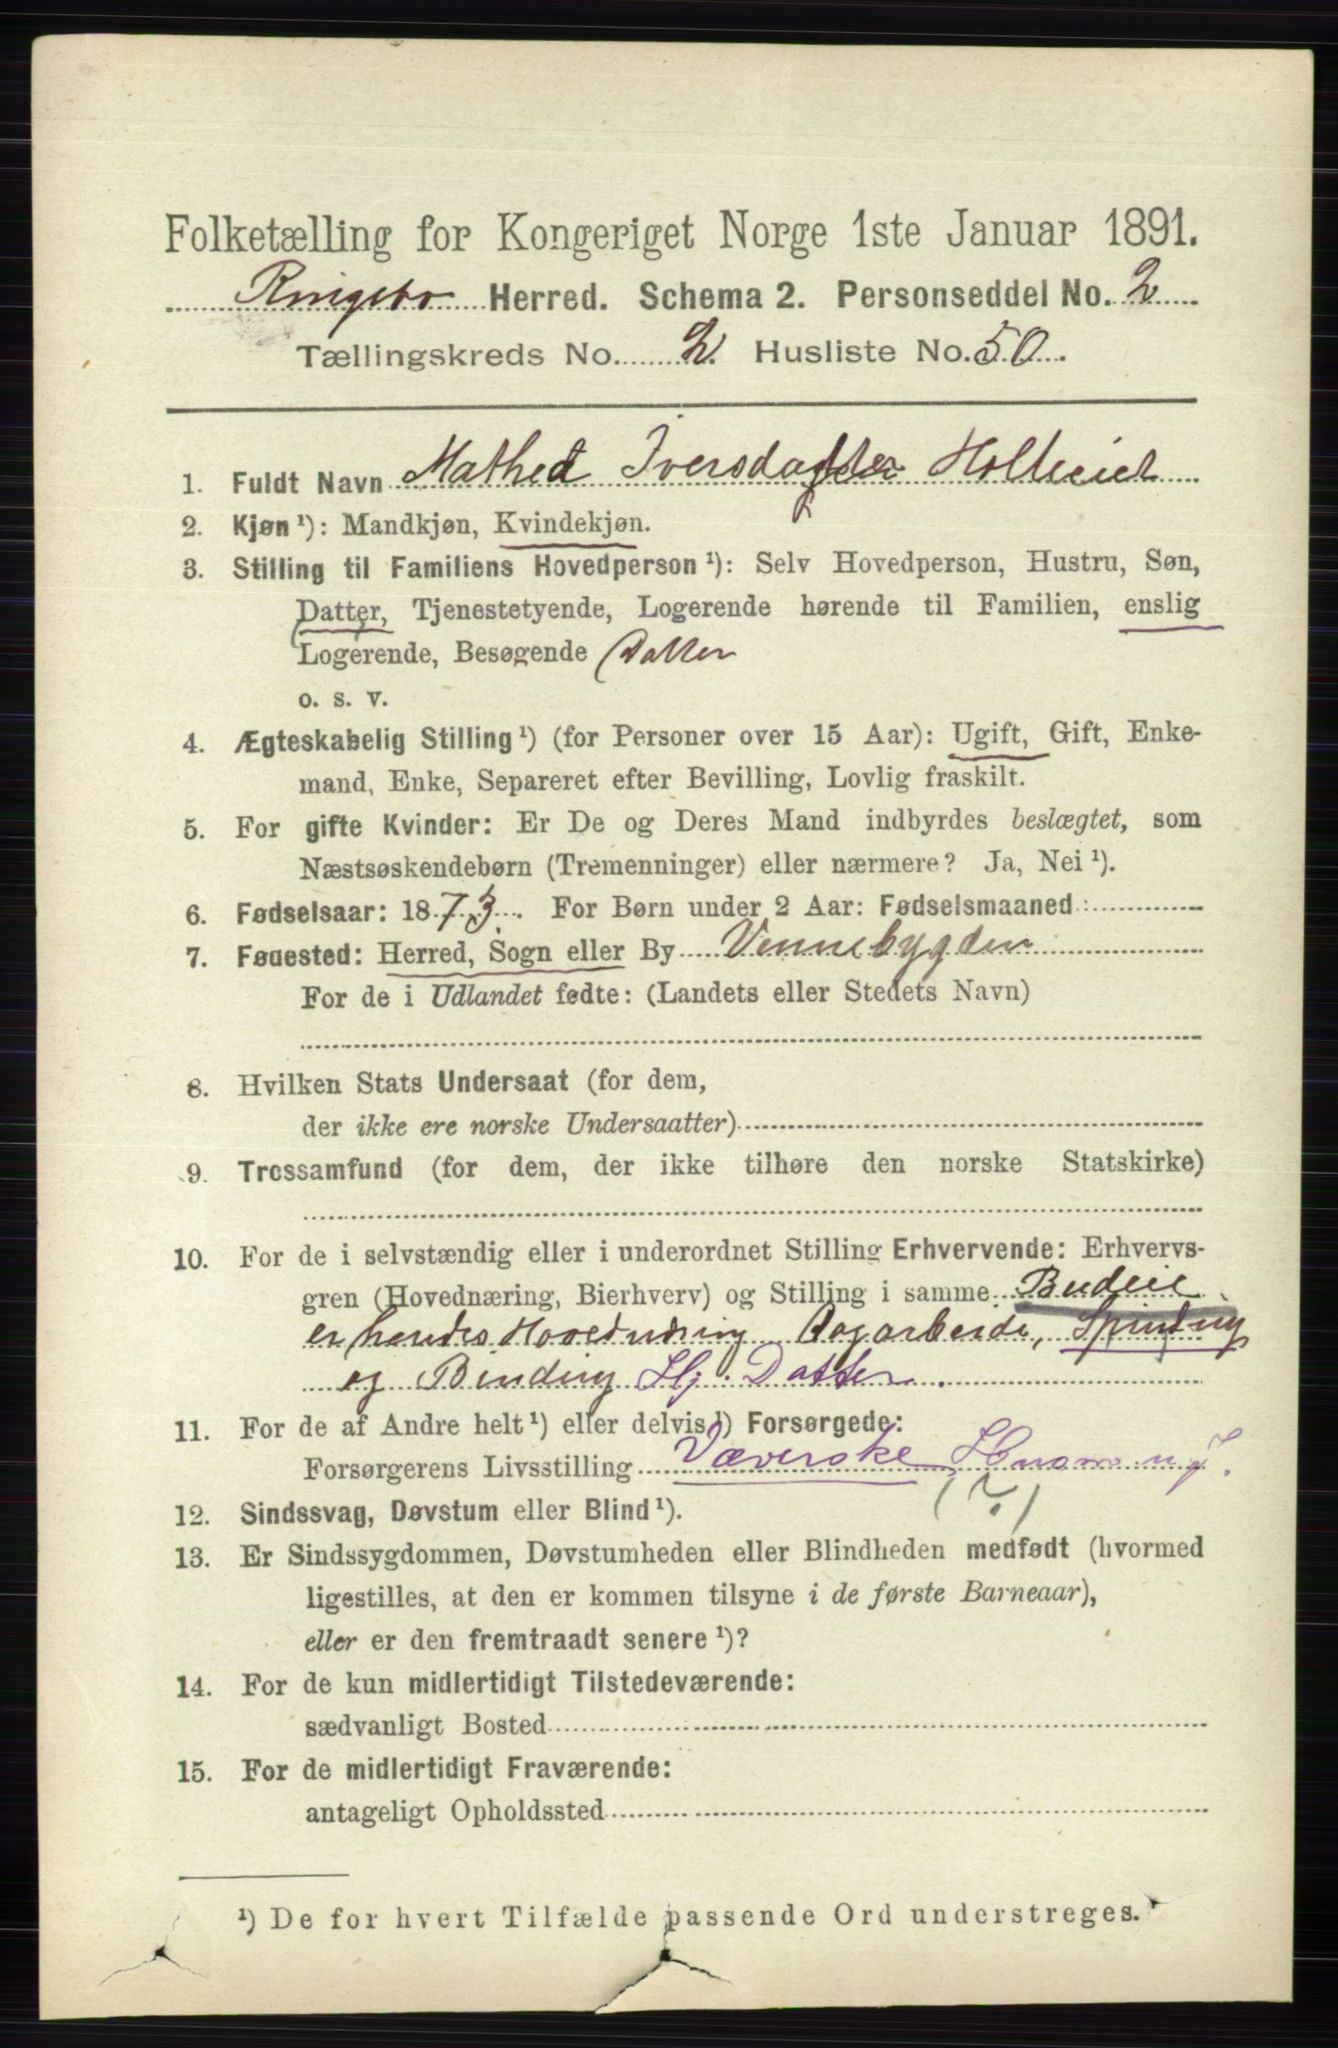 Folketælling for Kongeriget Norge 1ste Januar 1891.
Ringebo Herred. Schema 2. Personseddel No. 2
Tællingskreds No. 2. Husliste No. 50.
1. Fuldt Navn Mathed Iversdatter Holleiet
2. Kjøn ¹): Mandkjøn, Kvindekjøn.
3. Stilling til Familiens Hovedperson ¹): Selv Hovedperson, Hustru, Søn,
Datter, Tjenestetyende, Logerende hørende til Familien, enslig
Logerende, Besøgende Datter
o. s. v.
4. Ægteskabelig Stilling ¹) (for Personer over 15 Aar): Ugift, Gift, Enke-
mand, Enke, Separeret efter Bevilling, Lovlig fraskilt.
5. For gifte Kvinder: Er De og Deres Mand indbyrdes beslægtet, som
Næstsøskendebørn (Tremenninger) eller nærmere? Ja, Nei ¹).
6. Fødselsaar: 1873. For Børn under 2 Aar: Fødselsmaaned:
7. Fødested: Herred, Sogn eller By Vennebygden
For de i Udlandet fødte: (Landets eller Stedets Navn)
8. Hvilken Stats Undersaat (for dem,
der ikke ere norske Undersaatter)
9. Trossamfund (for dem, der ikke tilhøre den norske Statskirke)
10. For de i selvstændig eller i underordnet Stilling Erhvervende: Erhvervs-
gren (Hovednæring, Bierhverv) og Stilling i samme Budeie
er hendes Hovednæring Dagarbeide, Spinding
og Binding Hj. Datter.
11. For de af Andre helt ¹) eller delvis ¹) Forsørgede:
Forsørgerens Livsstilling Væverske Husm. m. J.
(?)
12. Sindssvag, Døvstum eller Blind ¹).
13. Er Sindssygdommen, Døvstumheden eller Blindheden medfødt (hvormed
ligestilles, at den er kommen tilsyne i de første Barneaar),
eller er den fremtraadt senere ¹)?
14. For de kun midlertidigt Tilstedeværende:
sædvanligt Bosted
15. For de midlertidigt Fraværende:
antageligt Opholdssted
¹) De for hvert Tilfælde passende Ord understreges.